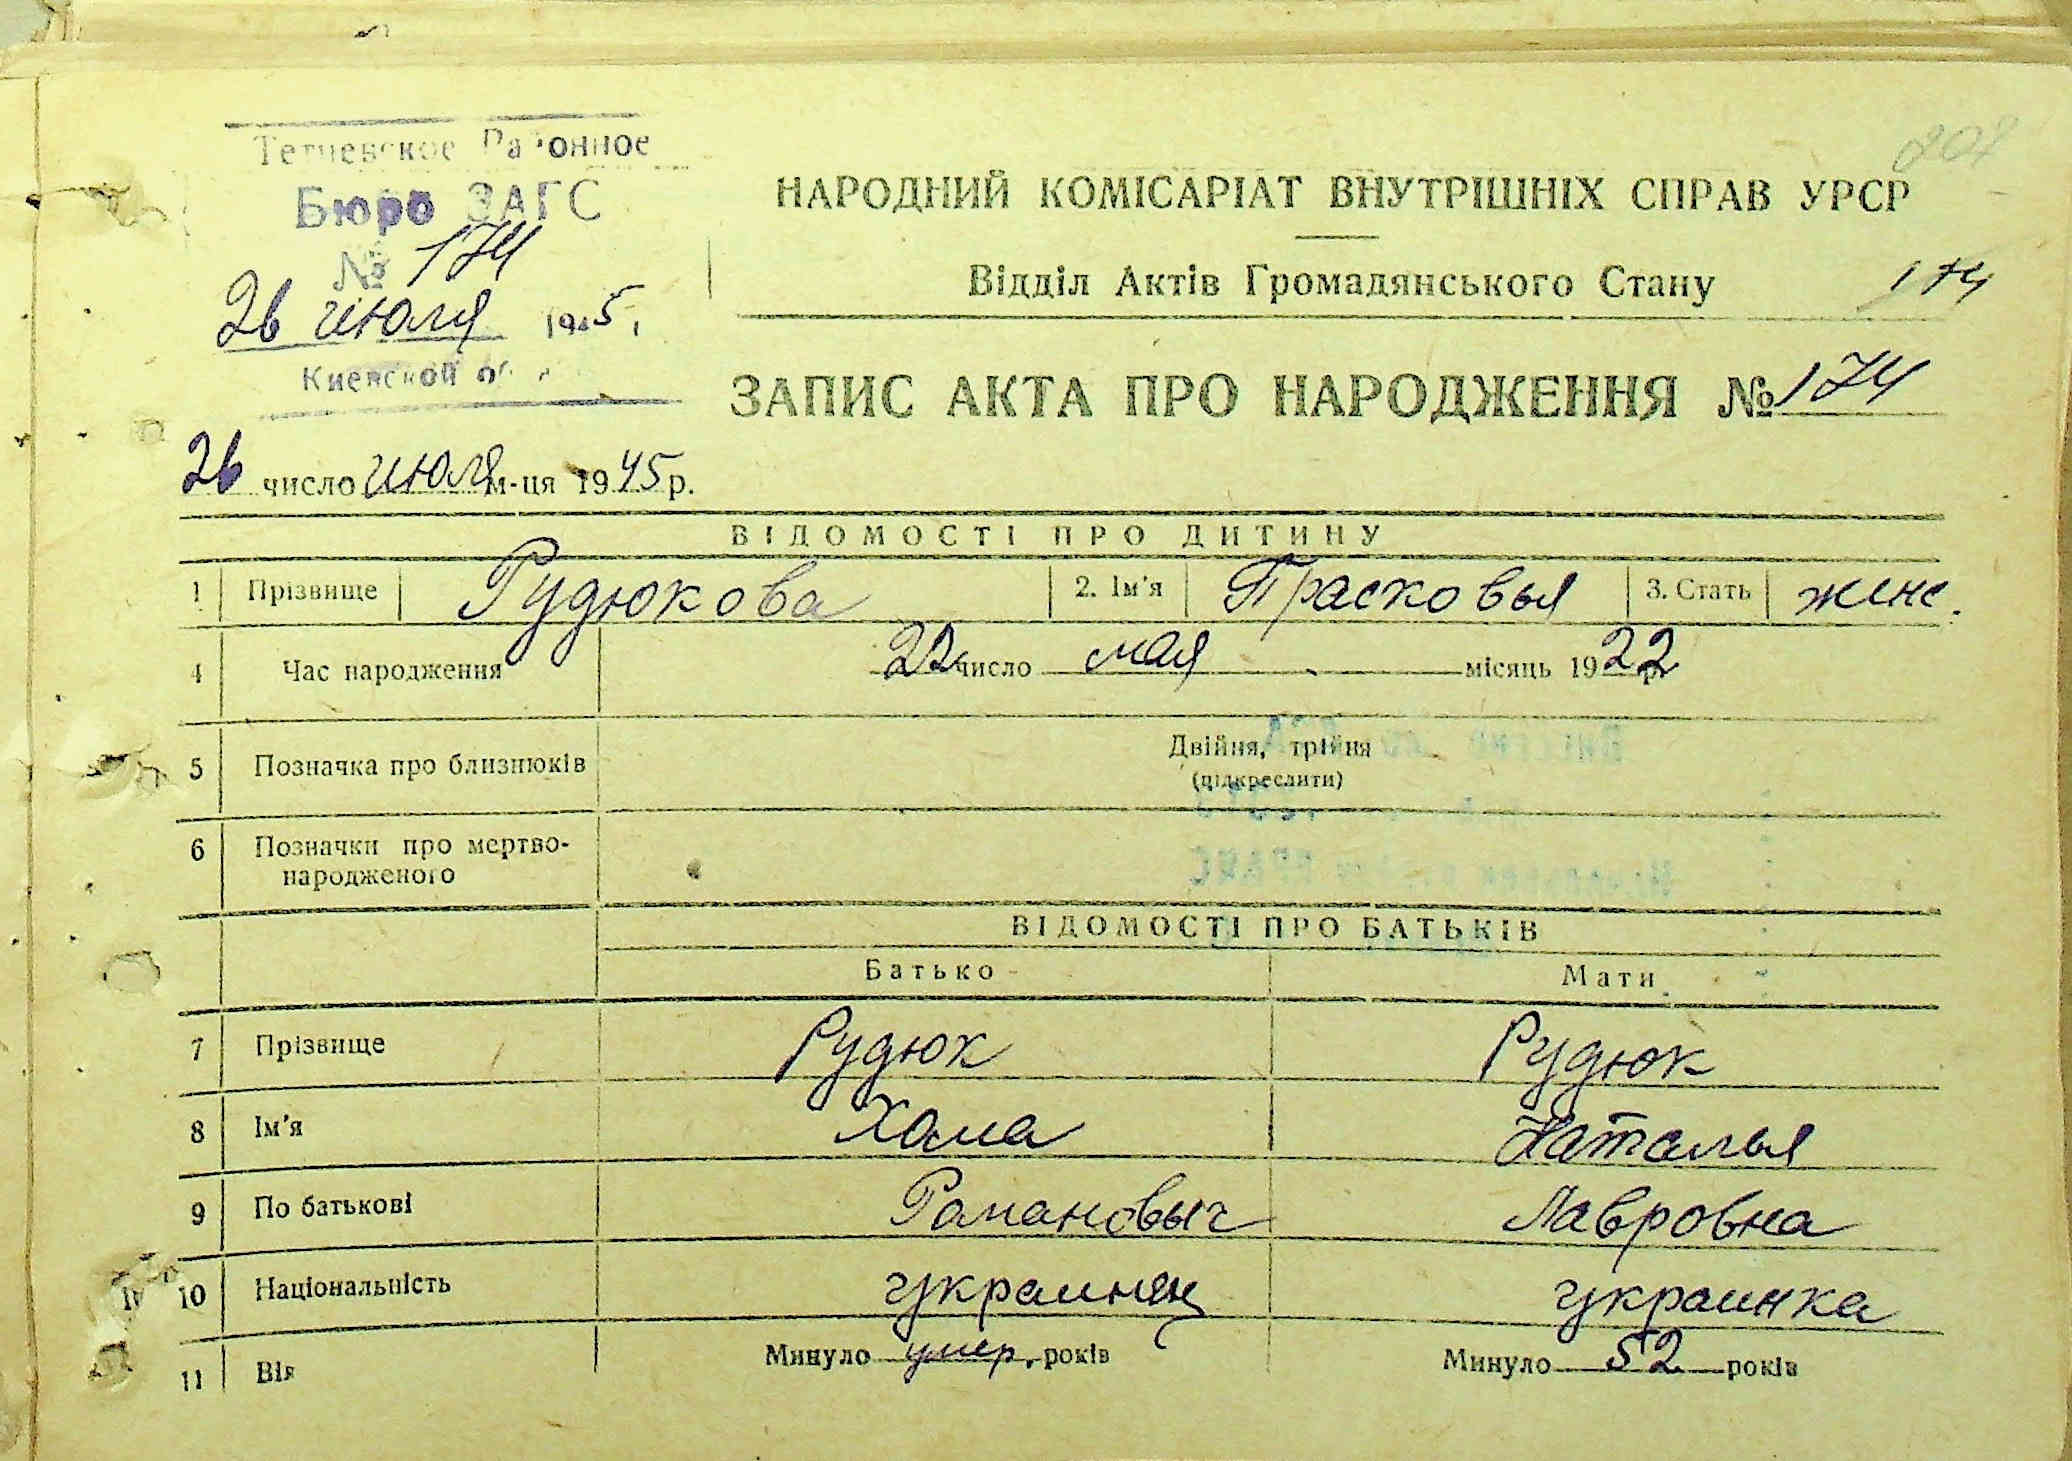 Бюро ЗАГС
№ 174
26 июля 1945,
Киевской
НАРОДНИЙ КОМІСАРІАТ ВНУТРІШНІХ СПРАВ УРСР
Відділ Актів Громадянського Стану 174
ЗАПИС АКТА ПРО НАРОДЖЕННЯ №174
26 число июля м-ця 1945 р.
ВІДОМОСТІ ПРО ДИТИНУ
1 Прізвище Рудюкова 2. Ім'я Прасковья 3. Стать женс.
4 Час народження 22 число мая місяць 1922 р.
5 Позначка про близнюків Двійня, трійня
(підкреслити)
6 Позначки про мертво-
народженого
ВІДОМОСТІ ПРО БАТЬКІВ
Батько Мати
7 Прізвище Рудюк Рудюк
8 Ім'я Хома Наталья
9 По батькові Романовыч Лавровна
10 Національність украинец украинка
11 Вік Минуло умер. років Минуло 52 років